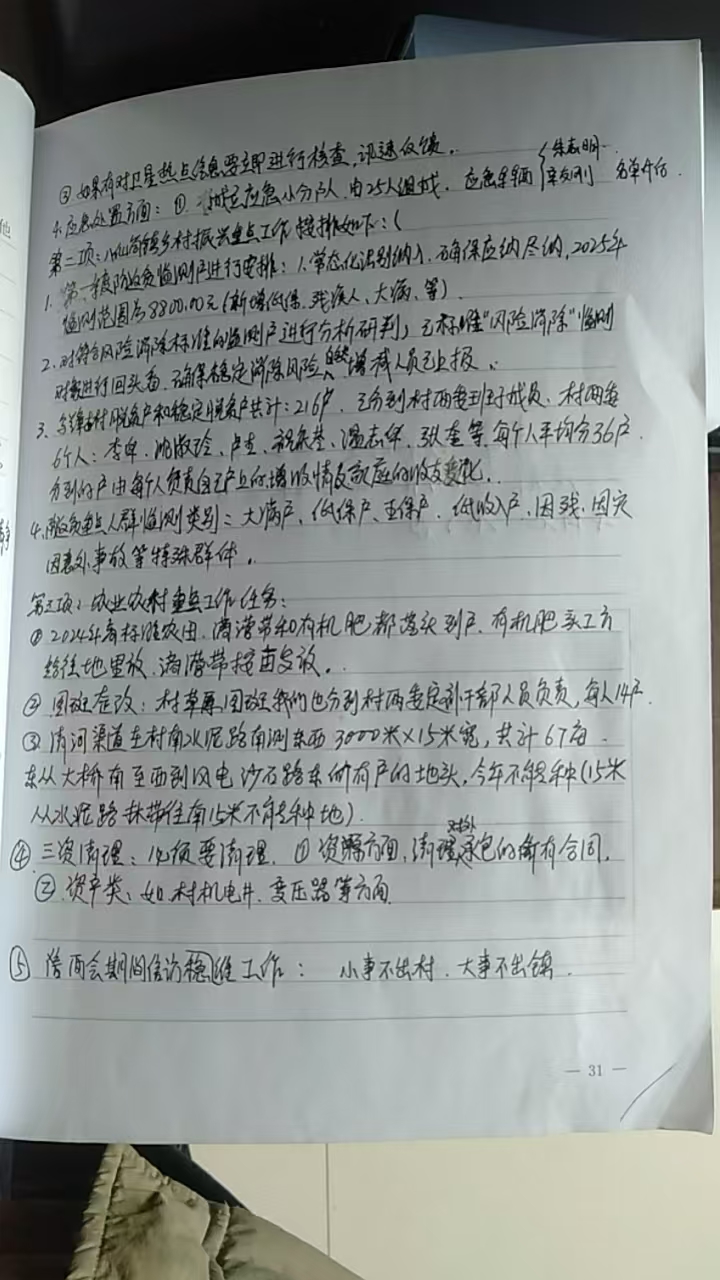 ③ 如果有对卫星热点信息要立即进行核查,迅速反馈。
4. 应急处置方面:①. 成立应急小分队,由25人组成, 应急车辆 { 朱志明 名单
第二项: 乡村振兴重点工作 安排如下:(
1. 第一 防返贫监测户进行安排:1.常态化识别纳入,确保应纳尽纳,2025年
监测范围为8800.00元(新增低保、残疾人、大病、等)
2. 对符合风险消除标准的监测户进行分析研判,已标准“风险消除”监测
对象进行回头看,确保稳定消除风险 自然增减人员已上报、
3. 村脱贫户和稳定脱贫户共计:216户, 已分到村两委班子成员、村两委
6个人:李 、 淑玲、卢 、 、温志 、张奎等,每个人平均分36户.
分到的户由每个人负责自己户上的增收情况 家庭的收支变化。
4. 防返贫重点人群监测类别:大病户、低保户、五保户、低收入户、因残、因灾
因意外事故等特殊群体。
第三项:农业农村重点工作任务:
① 2024年高标准农田,滴灌带和有机肥都落实到户、有机肥 工方
给往地里放,滴灌带按亩发放。
② 图斑整改:村 图斑我们也分到村两委定 干部人员负责,每人14户.
③ 清河渠道在村南水泥路南测东西 3000米×15米宽,共计67亩.
东从大桥南至西到风电沙石路东 所有户的地头,今年不能种(15米
从水泥路 林带往南15米不能种地)
④ 三资清理:必须要清理, ① 资源方面,清理对外承包的所有合同,
② 资产类:如 村机电井、变压器等方面
⑤ 两会期间信访稳 维工作: 小事不出村、大事不出镇.
— 31 —